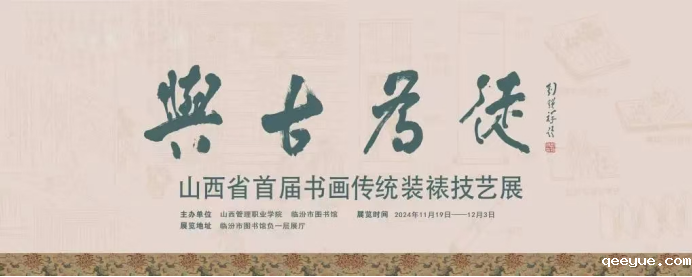 與古为徒
山西省首届书画传统装裱技艺展
主办单位 山西管理职业学院 临汾市图书馆 展览时间 2024年11月19日——12月3日
展览地址 临汾市图书馆负一层展厅
qeeyue.com